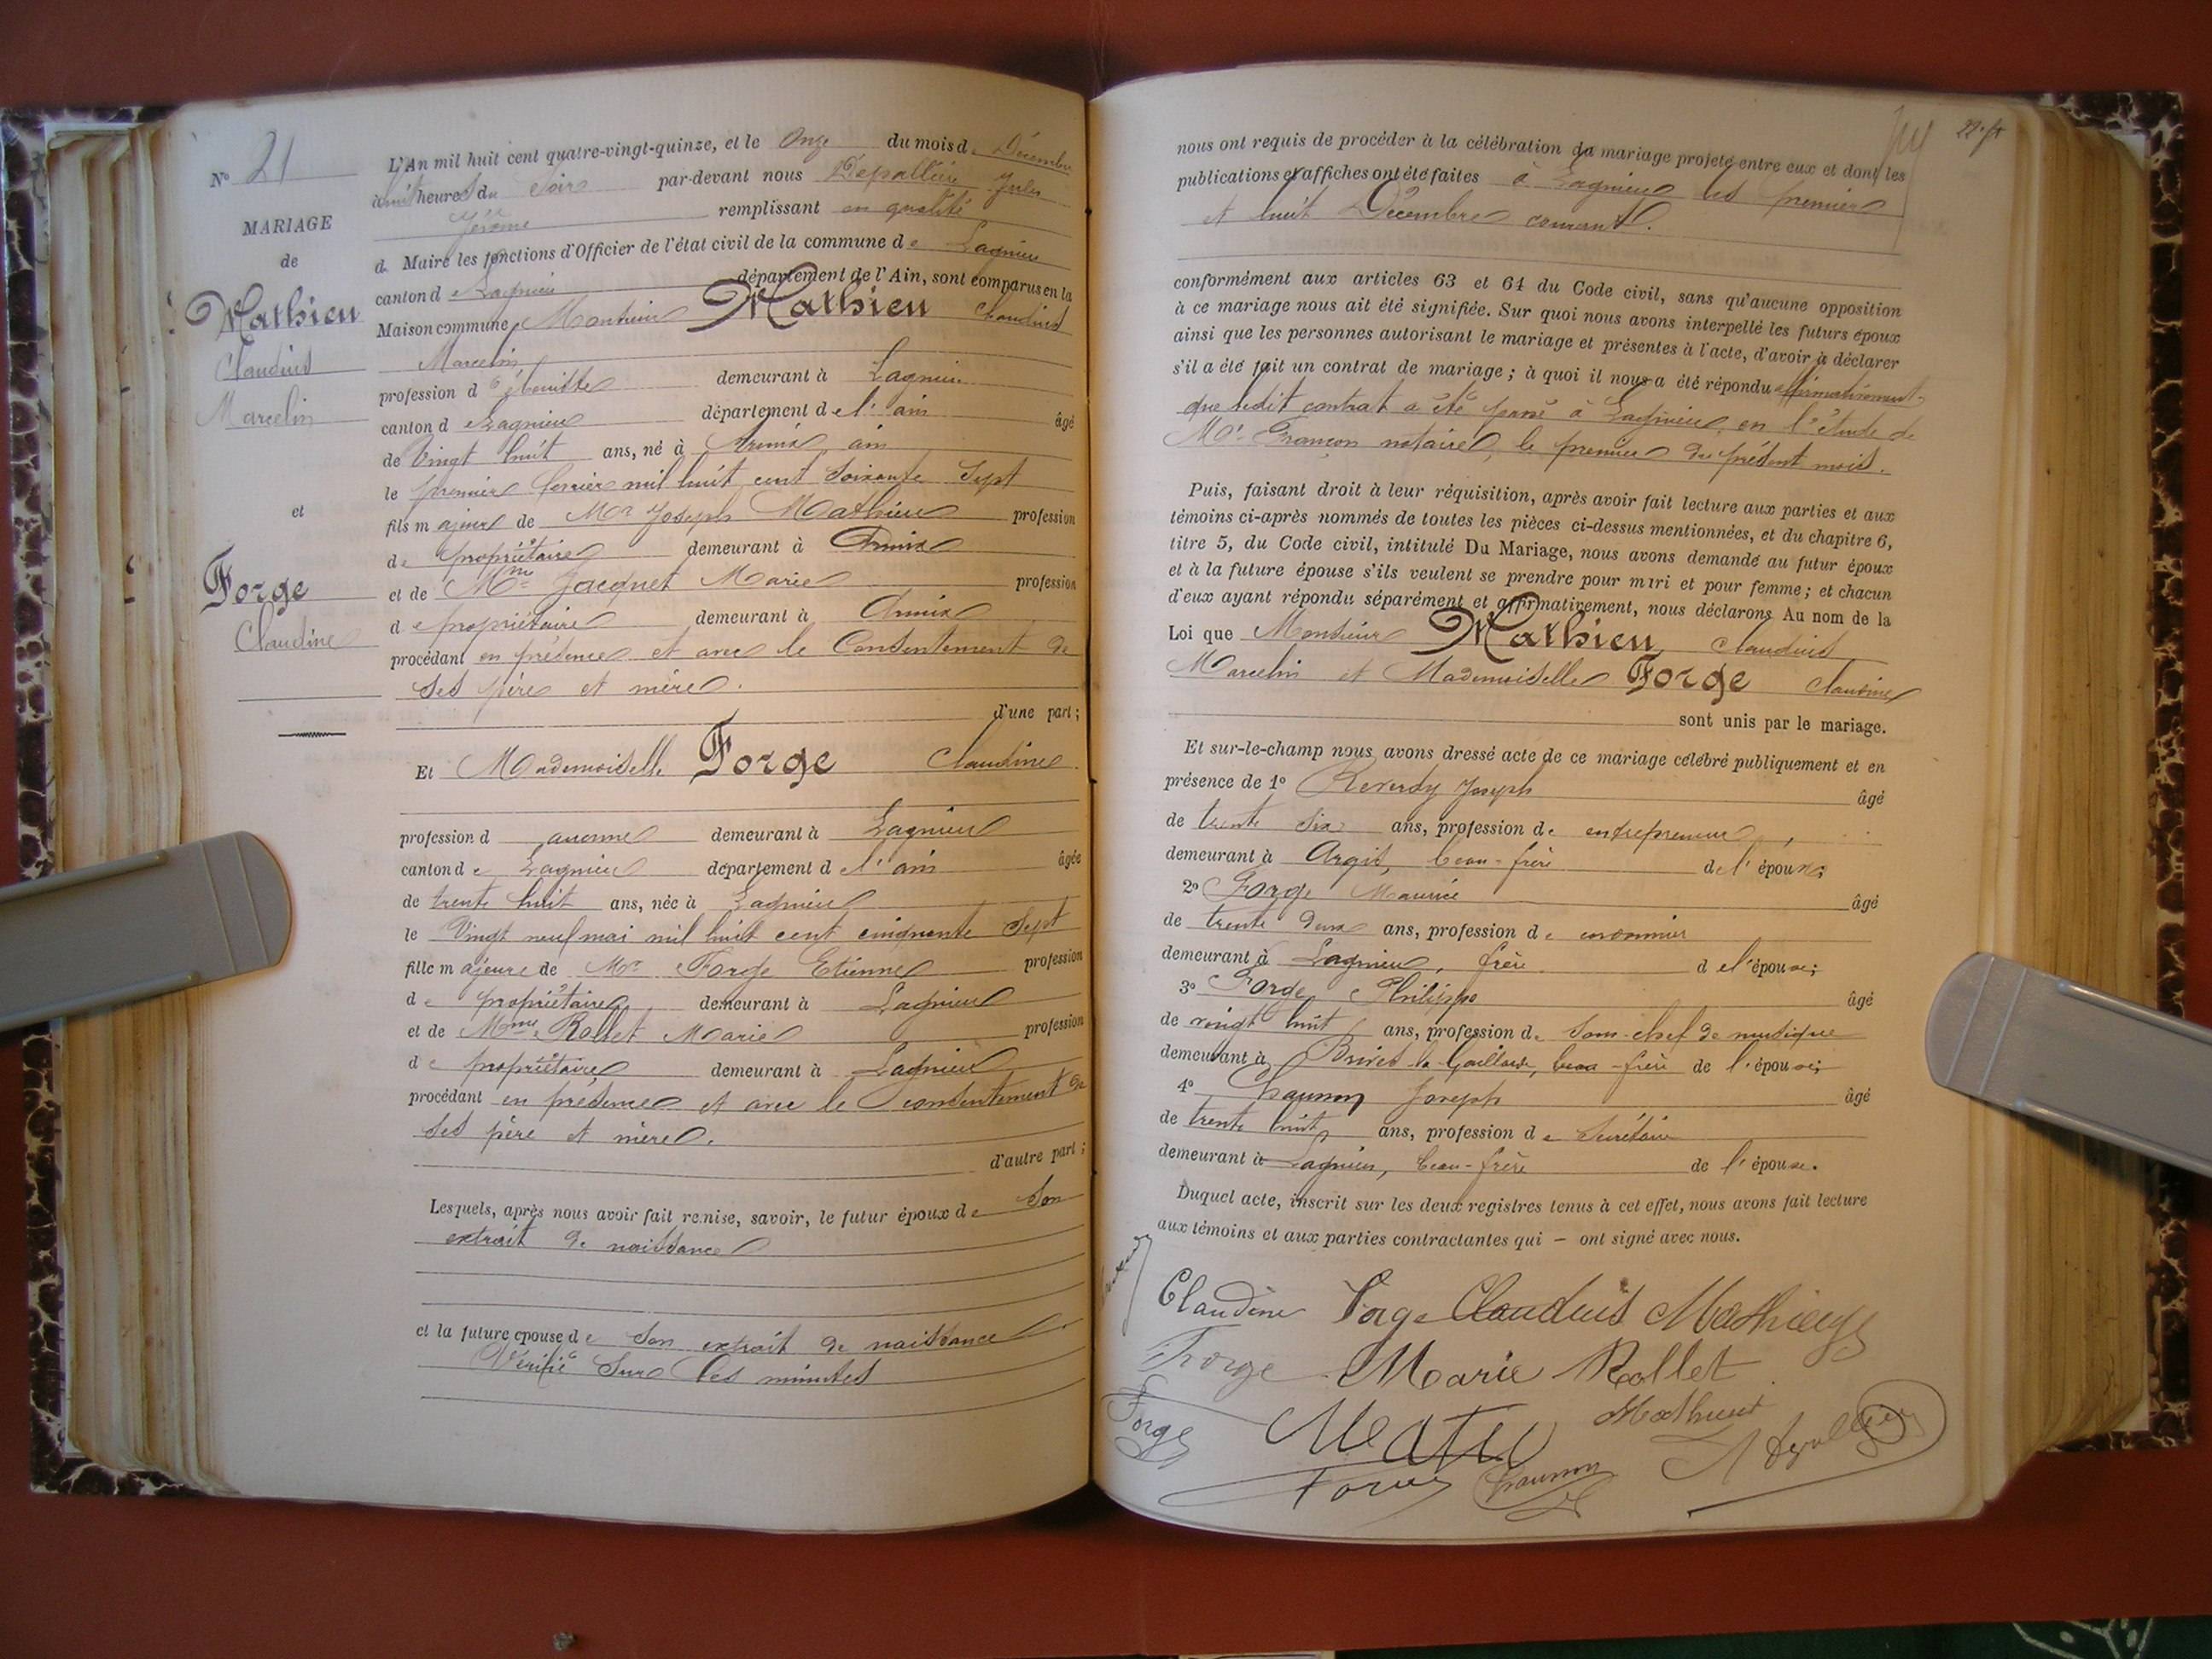 N° 21
MARIAGE
de
Mathieu
Claudius
Marcelin
et
Forge
Claudine
L'An mil huit cent quatre-vingt-quinze, et le Onze du mois de Décembre
à huit heures du Soir par-devant nous Depallière Jules
Jérôme remplissant en qualité
de Maire les fonctions d'Officier de l'état civil de la commune de Lagnieu
canton de Lagnieu département de l'Ain, sont comparus en la
Maison commune, Monsieur Mathieu Claudius
Marcelin
profession d' ébéniste demeurant à Lagnieu
canton de Lagnieu département de l'ain âgé
de Vingt huit ans, né à Armix ain
le premier février mil huit cent Soixante Sept
fils majeur de Mr Joseph Mathieu profession
de propriétaire demeurant à Armix
et de Mme Jacquet Marie profession
de propriétaire demeurant à Armix
procédant en présence et avec le Consentement de
Ses père et mère.
d'une part;
Et Mademoiselle Forge Claudine.
profession d aucune demeurant à Lagnieu
canton de Lagnieu département de l'ain âgée
de trente huit ans, née à Lagnieu
le Vingt neuf mai mil huit cent cinquante Sept
fille majeure de Mr Forge Etienne profession
de propriétaire demeurant à Lagnieu
et de Mme Rollet Marie profession
de propriétaire demeurant à Lagnieu
procédant en présence et avec le consentement de
Ses père et mère.
d'autre part;
Lesquels, après nous avoir fait remise, savoir, le futur époux de Son
extrait de naissance
et la future épouse de Son extrait de naissance
Vérifié Sur les minutes
nous ont requis de procéder à la célébration du mariage projeté entre eux et dont les
publications et affiches ont été faites à Lagnieu les premier
et huit Décembre courant.
conformément aux articles 63 et 64 du Code civil, sans qu'aucune opposition
à ce mariage nous ait été signifiée. Sur quoi nous avons interpellé les futurs époux
ainsi que les personnes autorisant le mariage et présentes à l'acte, d'avoir à déclarer
s'il a été fait un contrat de mariage; à quoi il nous a été répondu affirmativement
que ledit contrat a été passé à Lagnieu, en l'étude de
Me Françon notaire, le premier du présent mois.
Puis, faisant droit à leur réquisition, après avoir fait lecture aux parties et aux
témoins ci-après nommés de toutes les pièces ci-dessus mentionnées, et du chapitre 6,
titre 5, du Code civil, intitulé Du Mariage, nous avons demandé au futur époux
et à la future épouse s'ils veulent se prendre pour mari et pour femme; et chacun
d'eux ayant répondu séparément et affirmativement, nous déclarons Au nom de la
Loi que Monsieur Mathieu, Claudius
Marcelin et Mademoiselle Forge Claudine
sont unis par le mariage.
Et sur-le-champ nous avons dressé acte de ce mariage célébré publiquement et en
présence de 1° Reverdy Joseph âgé
de trente Six ans, profession de entrepreneur,
demeurant à Argis, beau-frère de l'épouse;
2° Forge Maurice âgé
de trente deux ans, profession de
demeurant à Lagnieu, frère de l'épouse;
3° Forge Philippe âgé
de vingt huit ans, profession de Sous-chef de musique
demeurant à Brives-la-Gaillarde, beau-frère de l'épouse;
4° Chaunon Joseph âgé
de trente huit ans, profession de Secrétaire
demeurant à Lagnieu, beau-frère de l'épouse.
Duquel acte, inscrit sur les deux registres tenus à cet effet, nous avons fait lecture
aux témoins et aux parties contractantes qui - ont signé avec nous.
Claudine Forge Claudius Mathieu
Forge Marie Rollet
Forge Mathieu
Chaunon